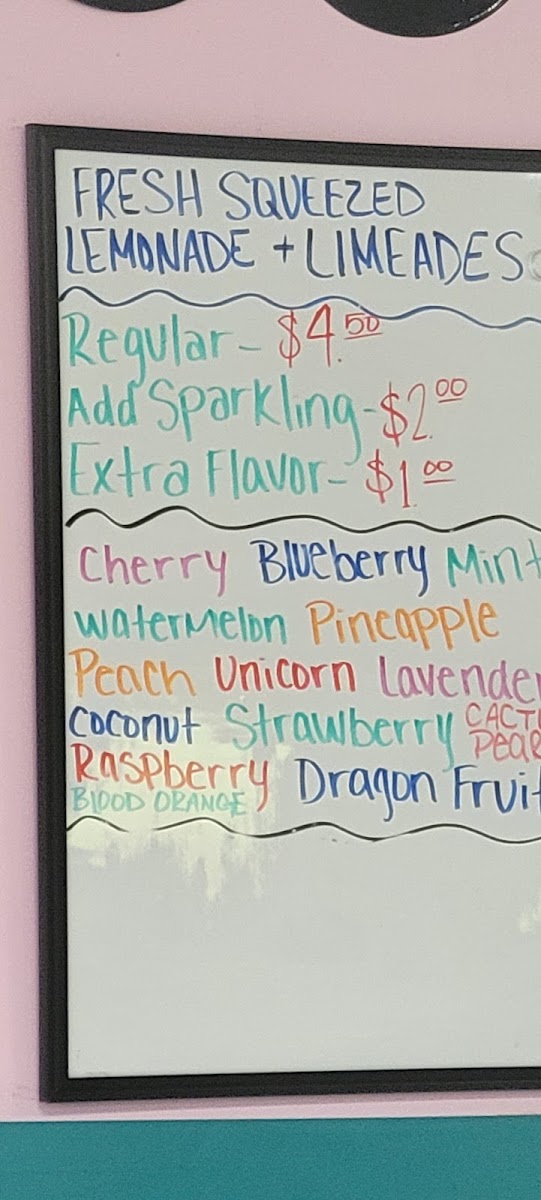 FRESH SQUEEZED
LEMONADE + LIMEADES
Regular - $4.50
Add Sparkling - $2.00
Extra Flavor - $1.00
Cherry Blueberry Mint
Watermelon Pineapple
Peach Unicorn Lavender
Coconut Strawberry CACTU
Pear
Raspberry Dragon Fruit
BLOOD ORANGE